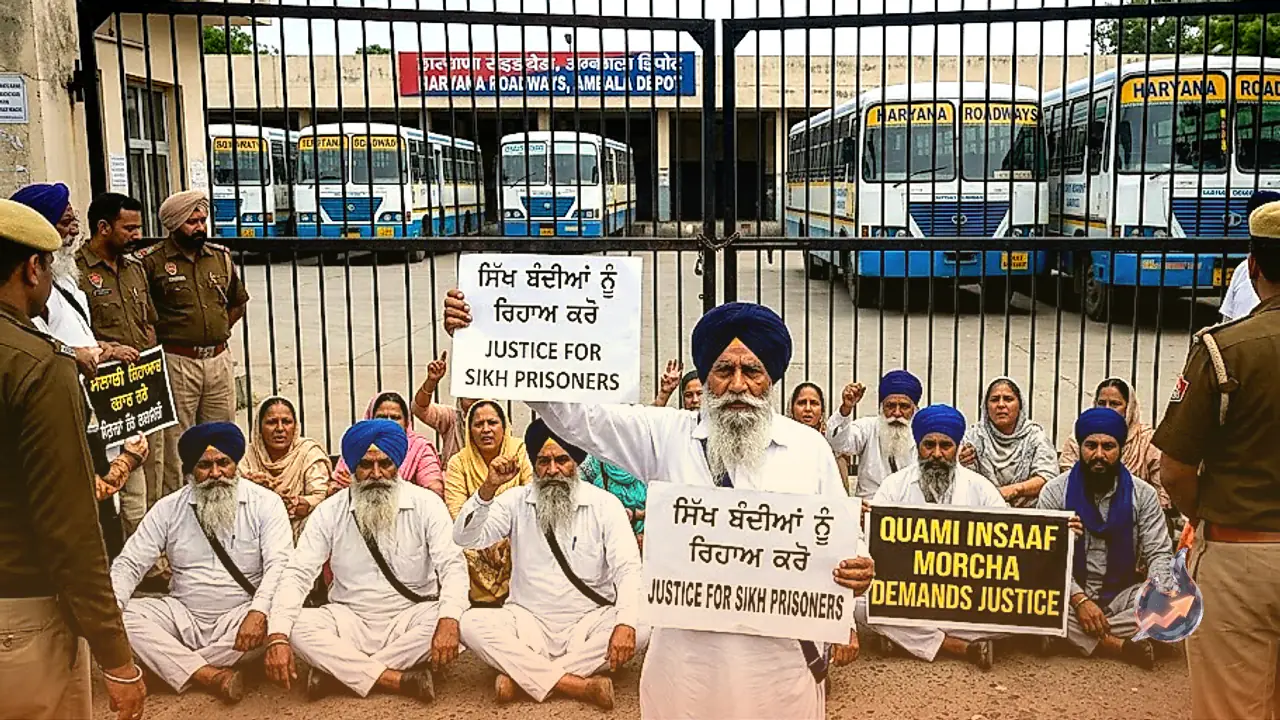 HARYANA ROADWAYS, AMBALA DEPOT
HARYANA ROADWAYS
HARYANA ROADWAYS
ਸਿੱਖ ਬੰਦੀਆਂ ਨੂੰ
ਰਿਹਾਅ ਕਰੋ
JUSTICE FOR
SIKH PRISONERS
ਸਿੱਖ ਬੰਦੀਆਂ ਨੂੰ
ਰਿਹਾਅ ਕਰੋ
JUSTICE FOR SIKH PRISONERS
QUAMI INSAAF
MORCHA
DEMANDS JUSTICE